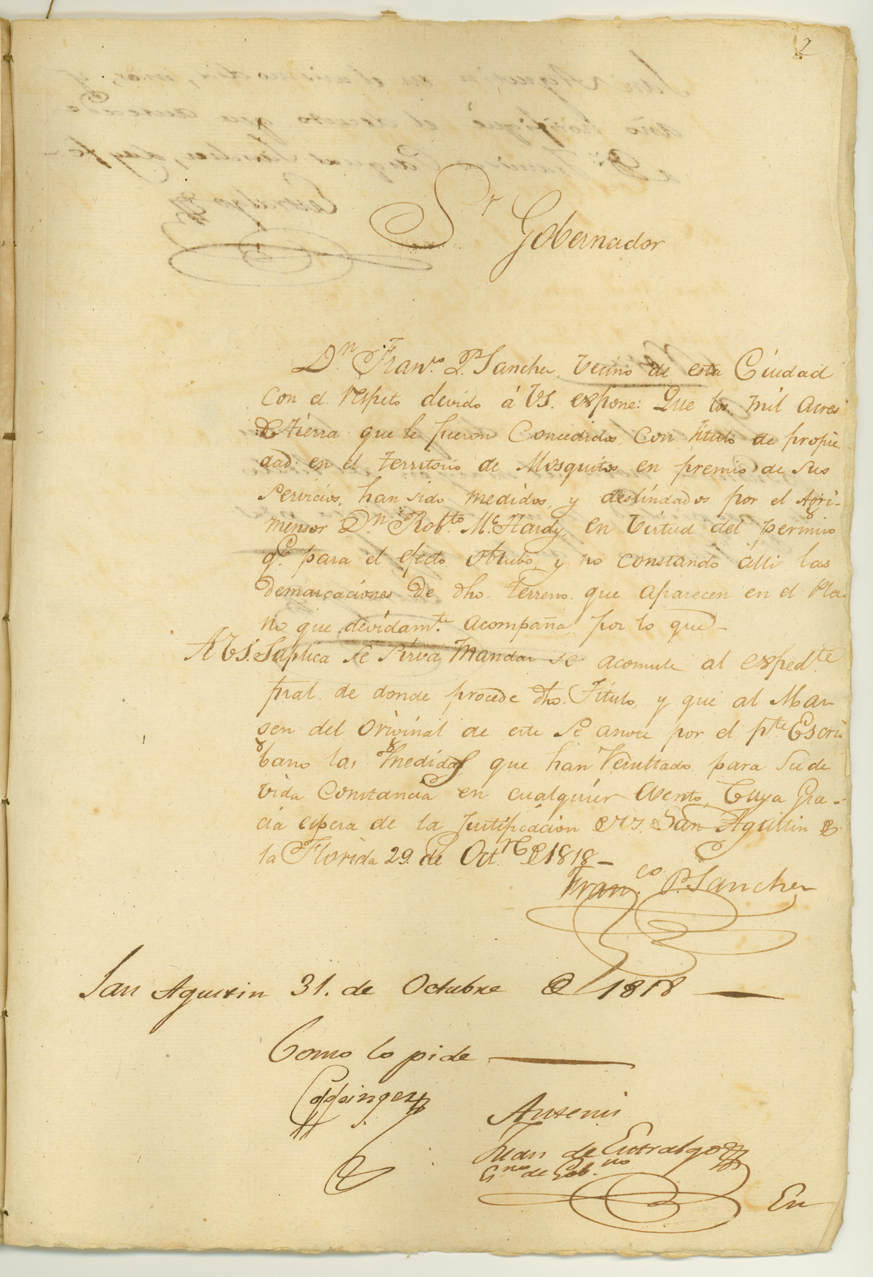 2
Sr Gobernador
Dn Franco. P. Sanchez, vecino de esta Ciudad
con el respeto devido á VS. expone: Que los mil acres
de tierra que le fueron Concedidos con titulo de propie-
dad en el territorio de Mosquitos en premio de sus
servicios, han sido medidos, y deslindados por el Agri-
mensor Dn Robto. McHardy, en virtud del permiso
qe. para el efecto obtubo, y no constando alli las
Demarcaciones de dho. terreno que aparecen en el Pla-
no que devidamte. acompaña, por lo que
A VS. Suplica se sirva mandar se acomule al expedte
pral. de donde procede dho. Titulo, y que al Mar-
gen del original de este se anote por el pte. Escri-
bano las medidas que han resultado para su de-
vida Constancia en cualquier evento, Cuya Gra-
cia espera de la Justificacion de VS. San Agustin de
la Florida 29. de Octre. de 1818-
Franco. P. Sanchez
San Agustin 31. de Octubre de 1818
Como lo pide
Coppinger
Antemi
Juan de Entralgo
Eno. de Gobno
En